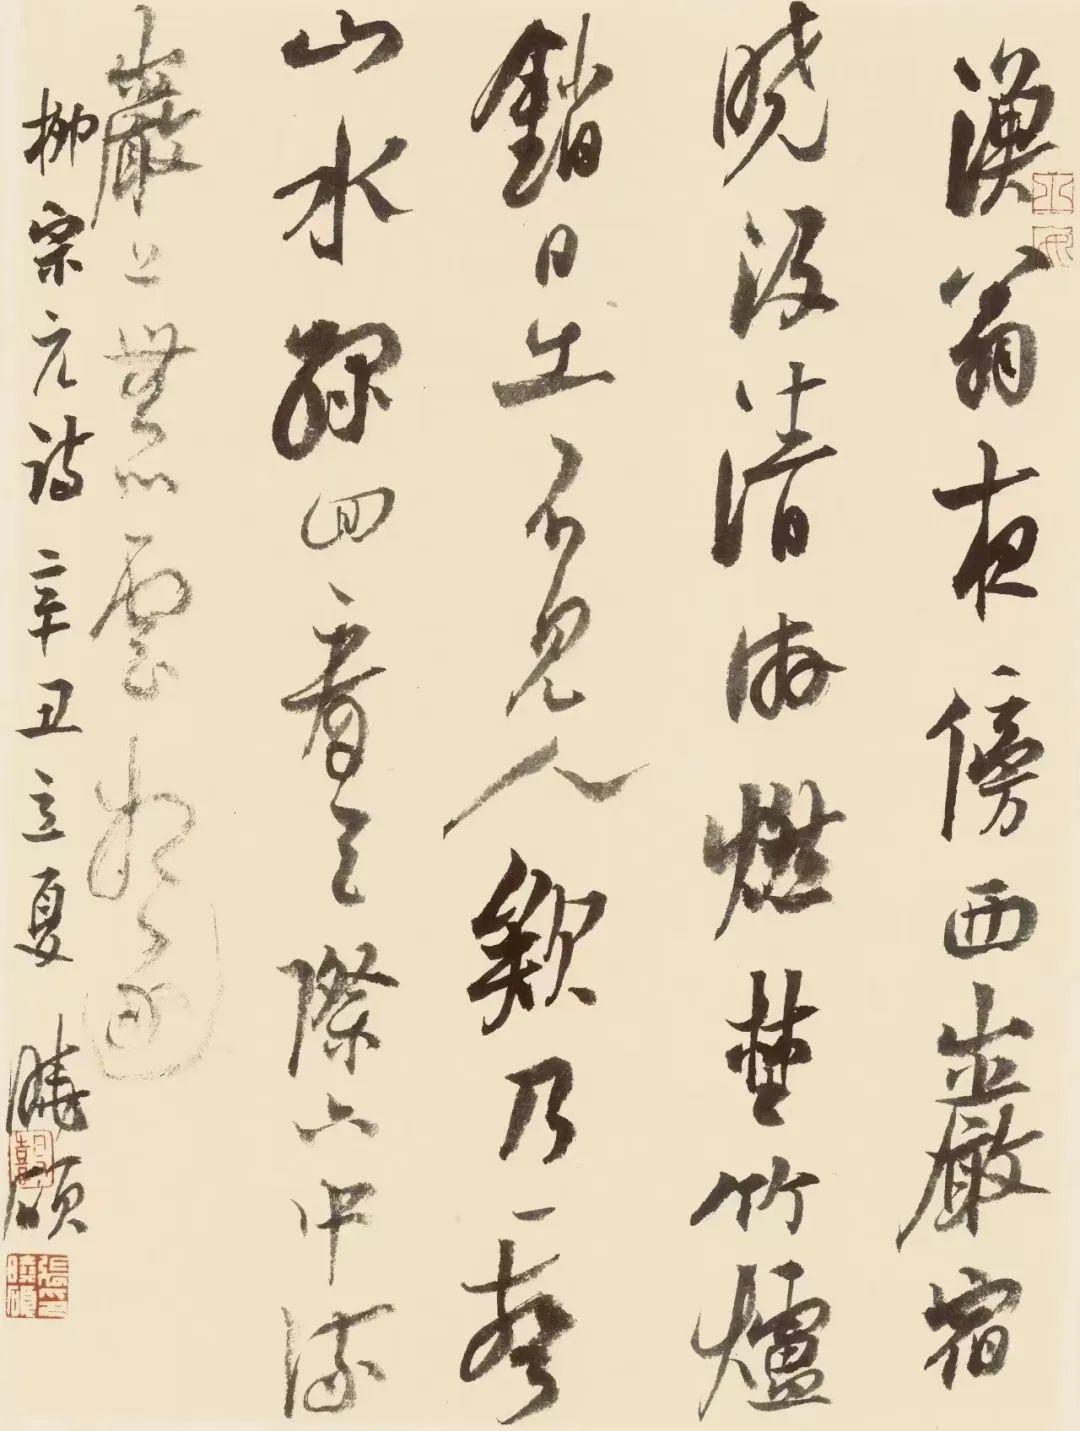 漁翁夜傍西巖宿
晓汲清湘燃楚竹爐
銷日出不見人欸乃一聲
山水緑回看天際下中流
巖上無心雲相逐
柳宗元詩辛丑立夏曉碩
張曉碩印